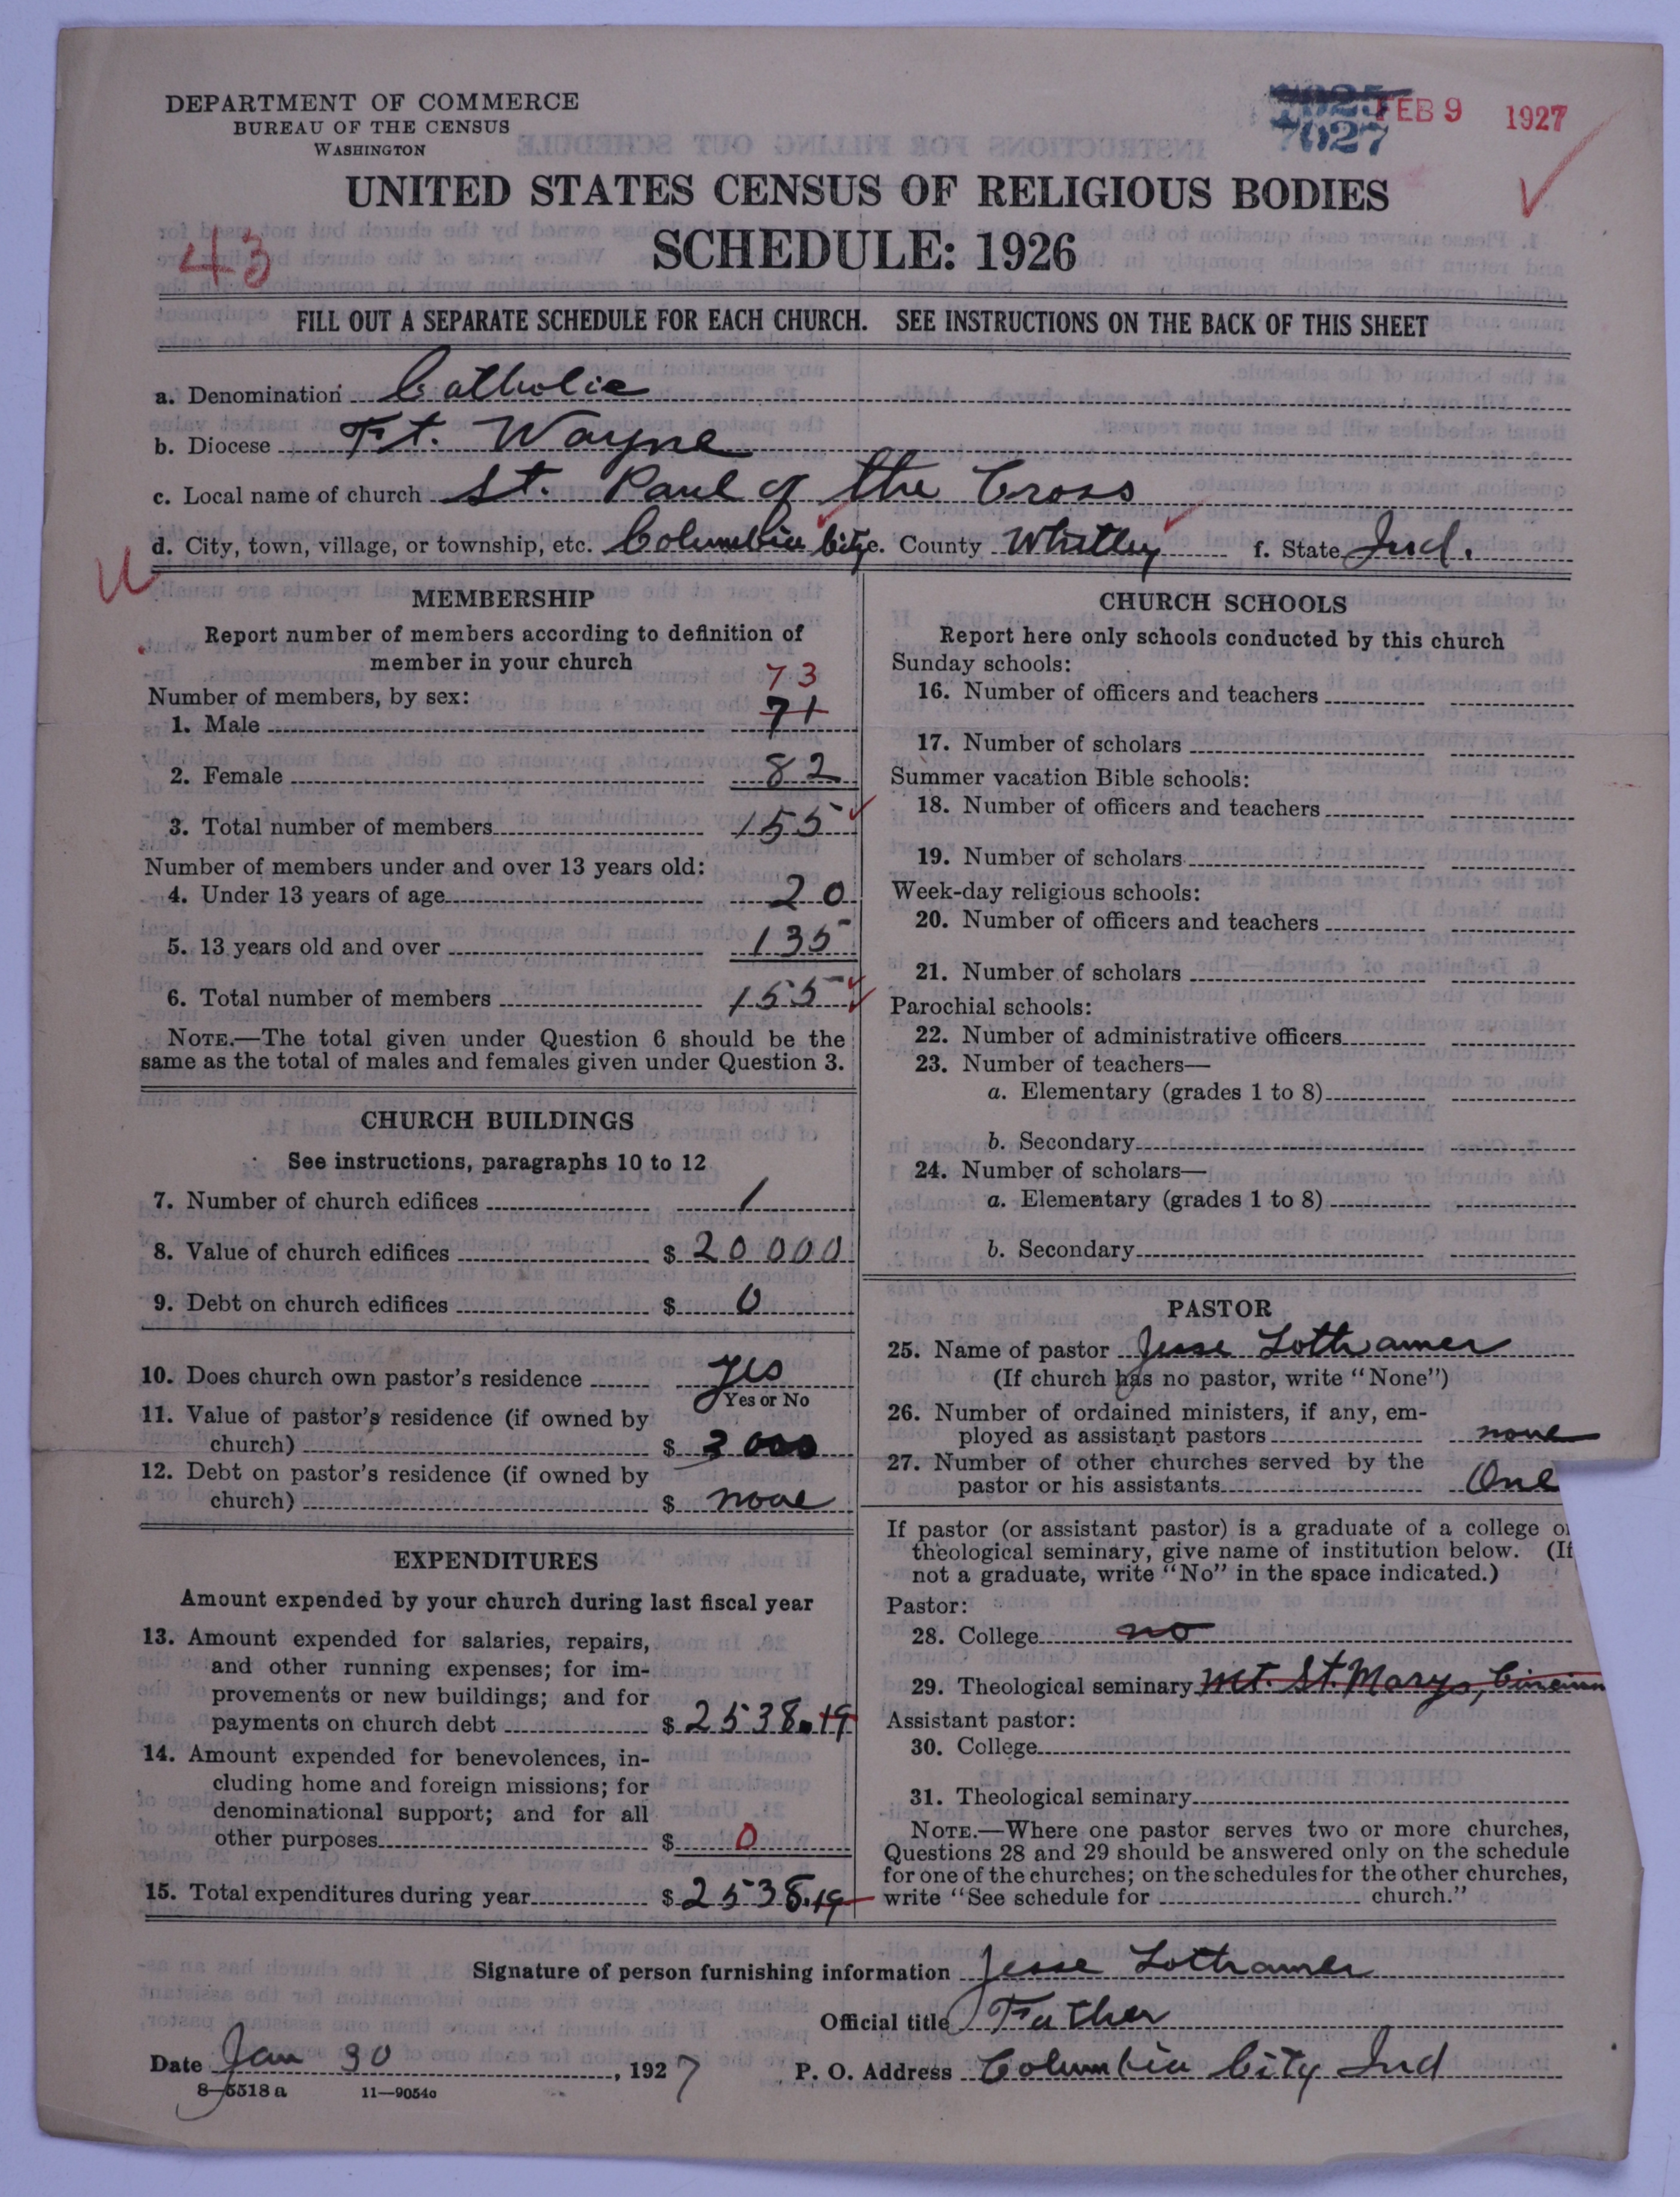 DEPARTMENT OF COMMERCE
BUREAU OF THE CENSUS
WASHINGTON
7027
FEB 9 1927
UNITED STATES CENSUS OF RELIGIOUS BODIES
SCHEDULE: 1926
43
FILL OUT A SEPARATE SCHEDULE FOR EACH CHURCH. SEE INSTRUCTIONS ON THE BACK OF THIS SHEET
a. Denomination Catholic
b. Diocese Ft. Wayne
c. Local name of church St. Paul of the Cross
d. City, town, village, or township, etc. Columbia City e. County Whitley f. State Ind.
MEMBERSHIP
Report number of members according to definition of
member in your church
73
Number of members, by sex:
1. Male 71
2. Female 82
3. Total number of members 155
Number of members under and over 13 years old:
4. Under 13 years of age 20
5. 13 years old and over 135
6. Total number of members 155
NOTE.—The total given under Question 6 should be the
same as the total of males and females given under Question 3.
CHURCH BUILDINGS
See instructions, paragraphs 10 to 12
7. Number of church edifices 1
8. Value of church edifices $ 20000
9. Debt on church edifices $ 0
10. Does church own pastor's residence yes
Yes or No
11. Value of pastor's residence (if owned by
church) $ 3000
12. Debt on pastor's residence (if owned by
church) $ none
EXPENDITURES
Amount expended by your church during last fiscal year
13. Amount expended for salaries, repairs,
and other running expenses; for im-
provements or new buildings; and for
payments on church debt $ 2538.19
14. Amount expended for benevolences, in-
cluding home and foreign missions; for
denominational support; and for all
other purposes $ 0
15. Total expenditures during year $ 2538.19
CHURCH SCHOOLS
Report here only schools conducted by this church
Sunday schools:
16. Number of officers and teachers
17. Number of scholars
Summer vacation Bible schools:
18. Number of officers and teachers
19. Number of scholars
Week-day religious schools:
20. Number of officers and teachers
21. Number of scholars
Parochial schools:
22. Number of administrative officers
23. Number of teachers—
a. Elementary (grades 1 to 8)
b. Secondary
24. Number of scholars—
a. Elementary (grades 1 to 8)
b. Secondary
PASTOR
25. Name of pastor Jesse Lothramer
(If church has no pastor, write "None")
26. Number of ordained ministers, if any, em-
ployed as assistant pastors none
27. Number of other churches served by the
pastor or his assistants One
If pastor (or assistant pastor) is a graduate of a college or
theological seminary, give name of institution below. (If
not a graduate, write "No" in the space indicated.)
Pastor:
28. College no
29. Theological seminary Mt. St. Marys, Cincinn
Assistant pastor:
30. College
31. Theological seminary
NOTE.—Where one pastor serves two or more churches,
Questions 28 and 29 should be answered only on the schedule
for one of the churches; on the schedules for the other churches,
write "See schedule for church."
Signature of person furnishing information Jesse Lothramer
Official title Father
Date Jan 30, 1927 P. O. Address Columbia City Ind
8—5518a 11—9054c